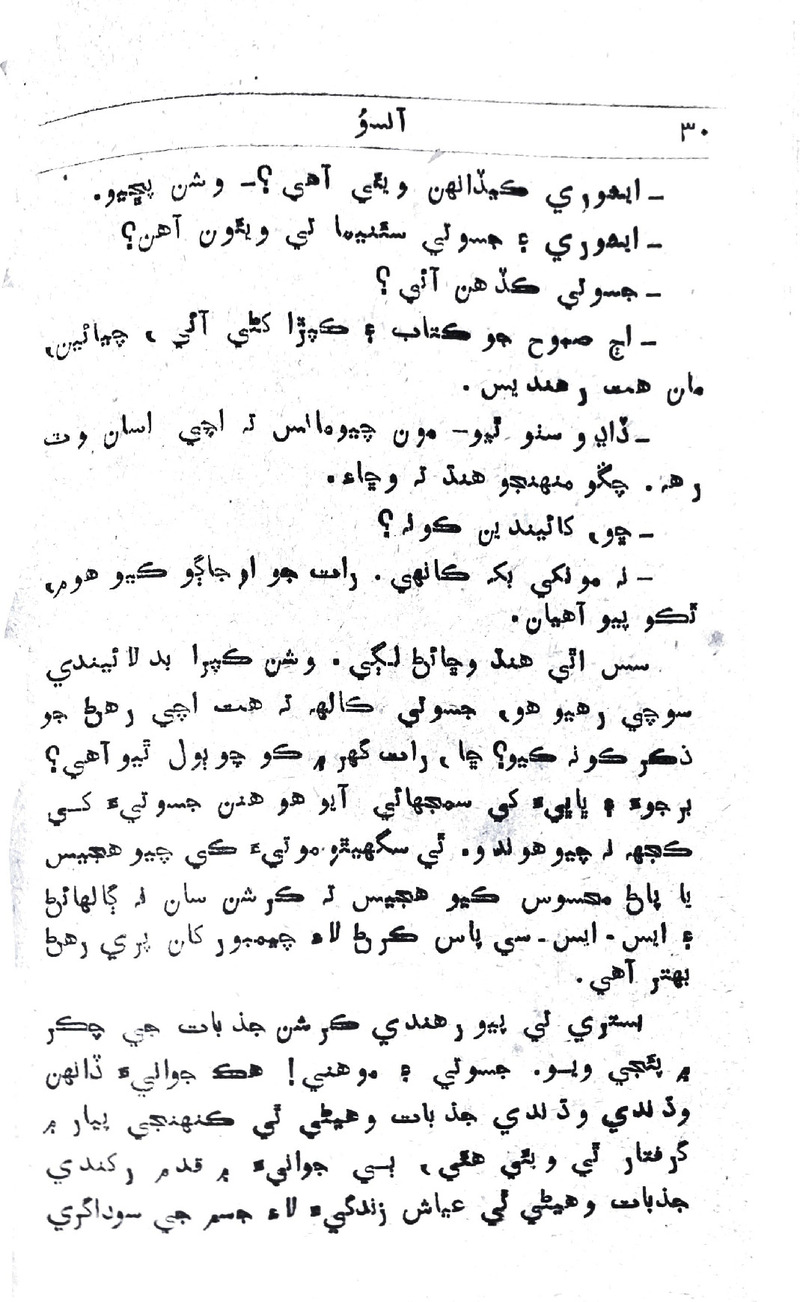 ٣٠ آلسوُ
ــ ايشوري ڪيڏانهن ويئي آهي؟ــ وشن پڇيو.
ــ ايشوري ۽ جسوتي سئنيما تي ويئون آهن؟
ــ جسوتي ڪڏهن آئي؟
ــ اڄ صبوح جو ڪتاب ۽ ڪپڙا کڻي آئي، چيائين،
مان هت رهنديس.
ــ ڏاڍو سٺو ٿيو– مون چيومانس ته اچي اسان وٽ
رهه. چڱو منهنجو هنڌ ته وڇاءِ.
ــ ڇو، کائيندين ڪونه؟
ــ نه مونکي بک ڪانهي. رات جو اوجاڳو ڪيو هوم،
ٿڪو پيو آهيان.
سس اٿي هنڌ وڇائڻ لڳي. وشن ڪپرا بدلائيندي
سوچي رهيو هو، جسوتي ڪالهه ته هت اچي رهڻ جو
ذڪر ڪونه ڪيو؟ ڇا، رات گهر ۾ ڪو چوٻول ٿيو آهي؟
برجوءَ ۽ ڀاڀيءَ کي سمجهائي آيو هو هنن جسوتيءَ کي
ڪجهه نه چيو هوندو. ٿي سگهيٿو موتيءَ کي چيو هجيس
يا پاڻ محسوس ڪيو هجيس ته ڪرشن سان نه ڳالهائڻ
۽ ايس-ايس-سي پاس ڪرڻ لاءِ چيمبور کان پري رهڻ
بهتر آهي.
بستري تي پيو رهندي ڪرشن جذبات جي چڪر
۾ پئجي ويو. جسوتي ۽ موهني! هڪ جوانيءَ ڏانهن
وڌندي وڌندي جذبات وهيڻي ٿي ڪنهنجي پيار ۾
گرفتار ٿي ويئي هئي، ٻي جوانيءَ ۾ قدم رکندي
جذبات وهيڻي ٿي عياش زندگيءَ لاءِ جسم جي سوداگري